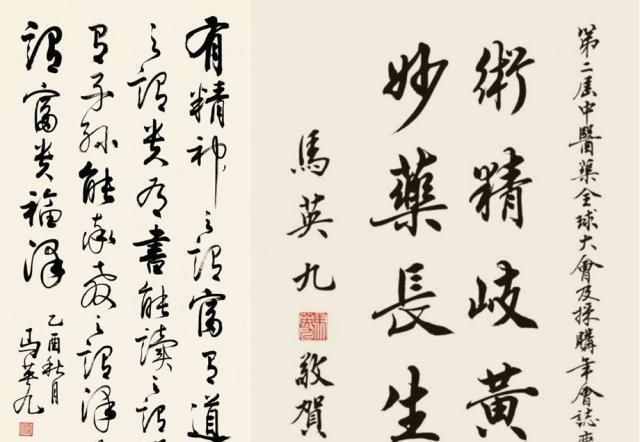 有精神之謂富有道
之謂貴有書能讀之謂
有子孫能承教之謂澤
謂富貴福澤
乙酉秋月
馬英九
第二屆中醫藥全球大會及採購年會誌慶
術精岐黃
妙藥長生
馬英九
敬賀